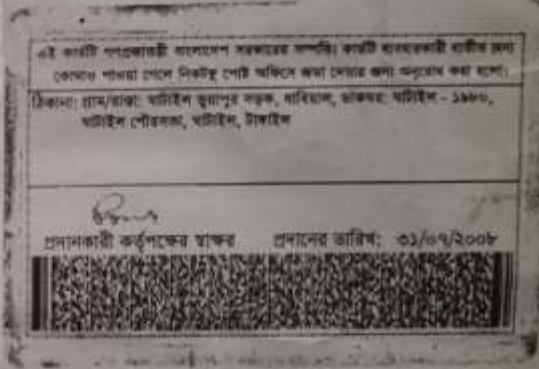 এই কার্ডটি গণপ্রজাতন্ত্রী বাংলাদেশ সরকারের সম্পত্তি। কার্ডটি ব্যবহারকারী ব্যতীত অন্য
কোথাও পাওয়া গেলে নিকটস্থ পোস্ট অফিসে জমা দেবার জন্য অনুরোধ করা হলো।
ঠিকানা: গ্রাম/রাস্তা: ঘাটাইল ভুয়াপুর সড়ক, ডাকঘর: ঘাটাইল - ১৯৮০,
ঘাটাইল পৌরসভা, ঘাটাইল, টাঙ্গাইল
প্রদানকারী কর্তৃপক্ষের স্বাক্ষর প্রদানের তারিখ: ৩১/০৭/২০০৮